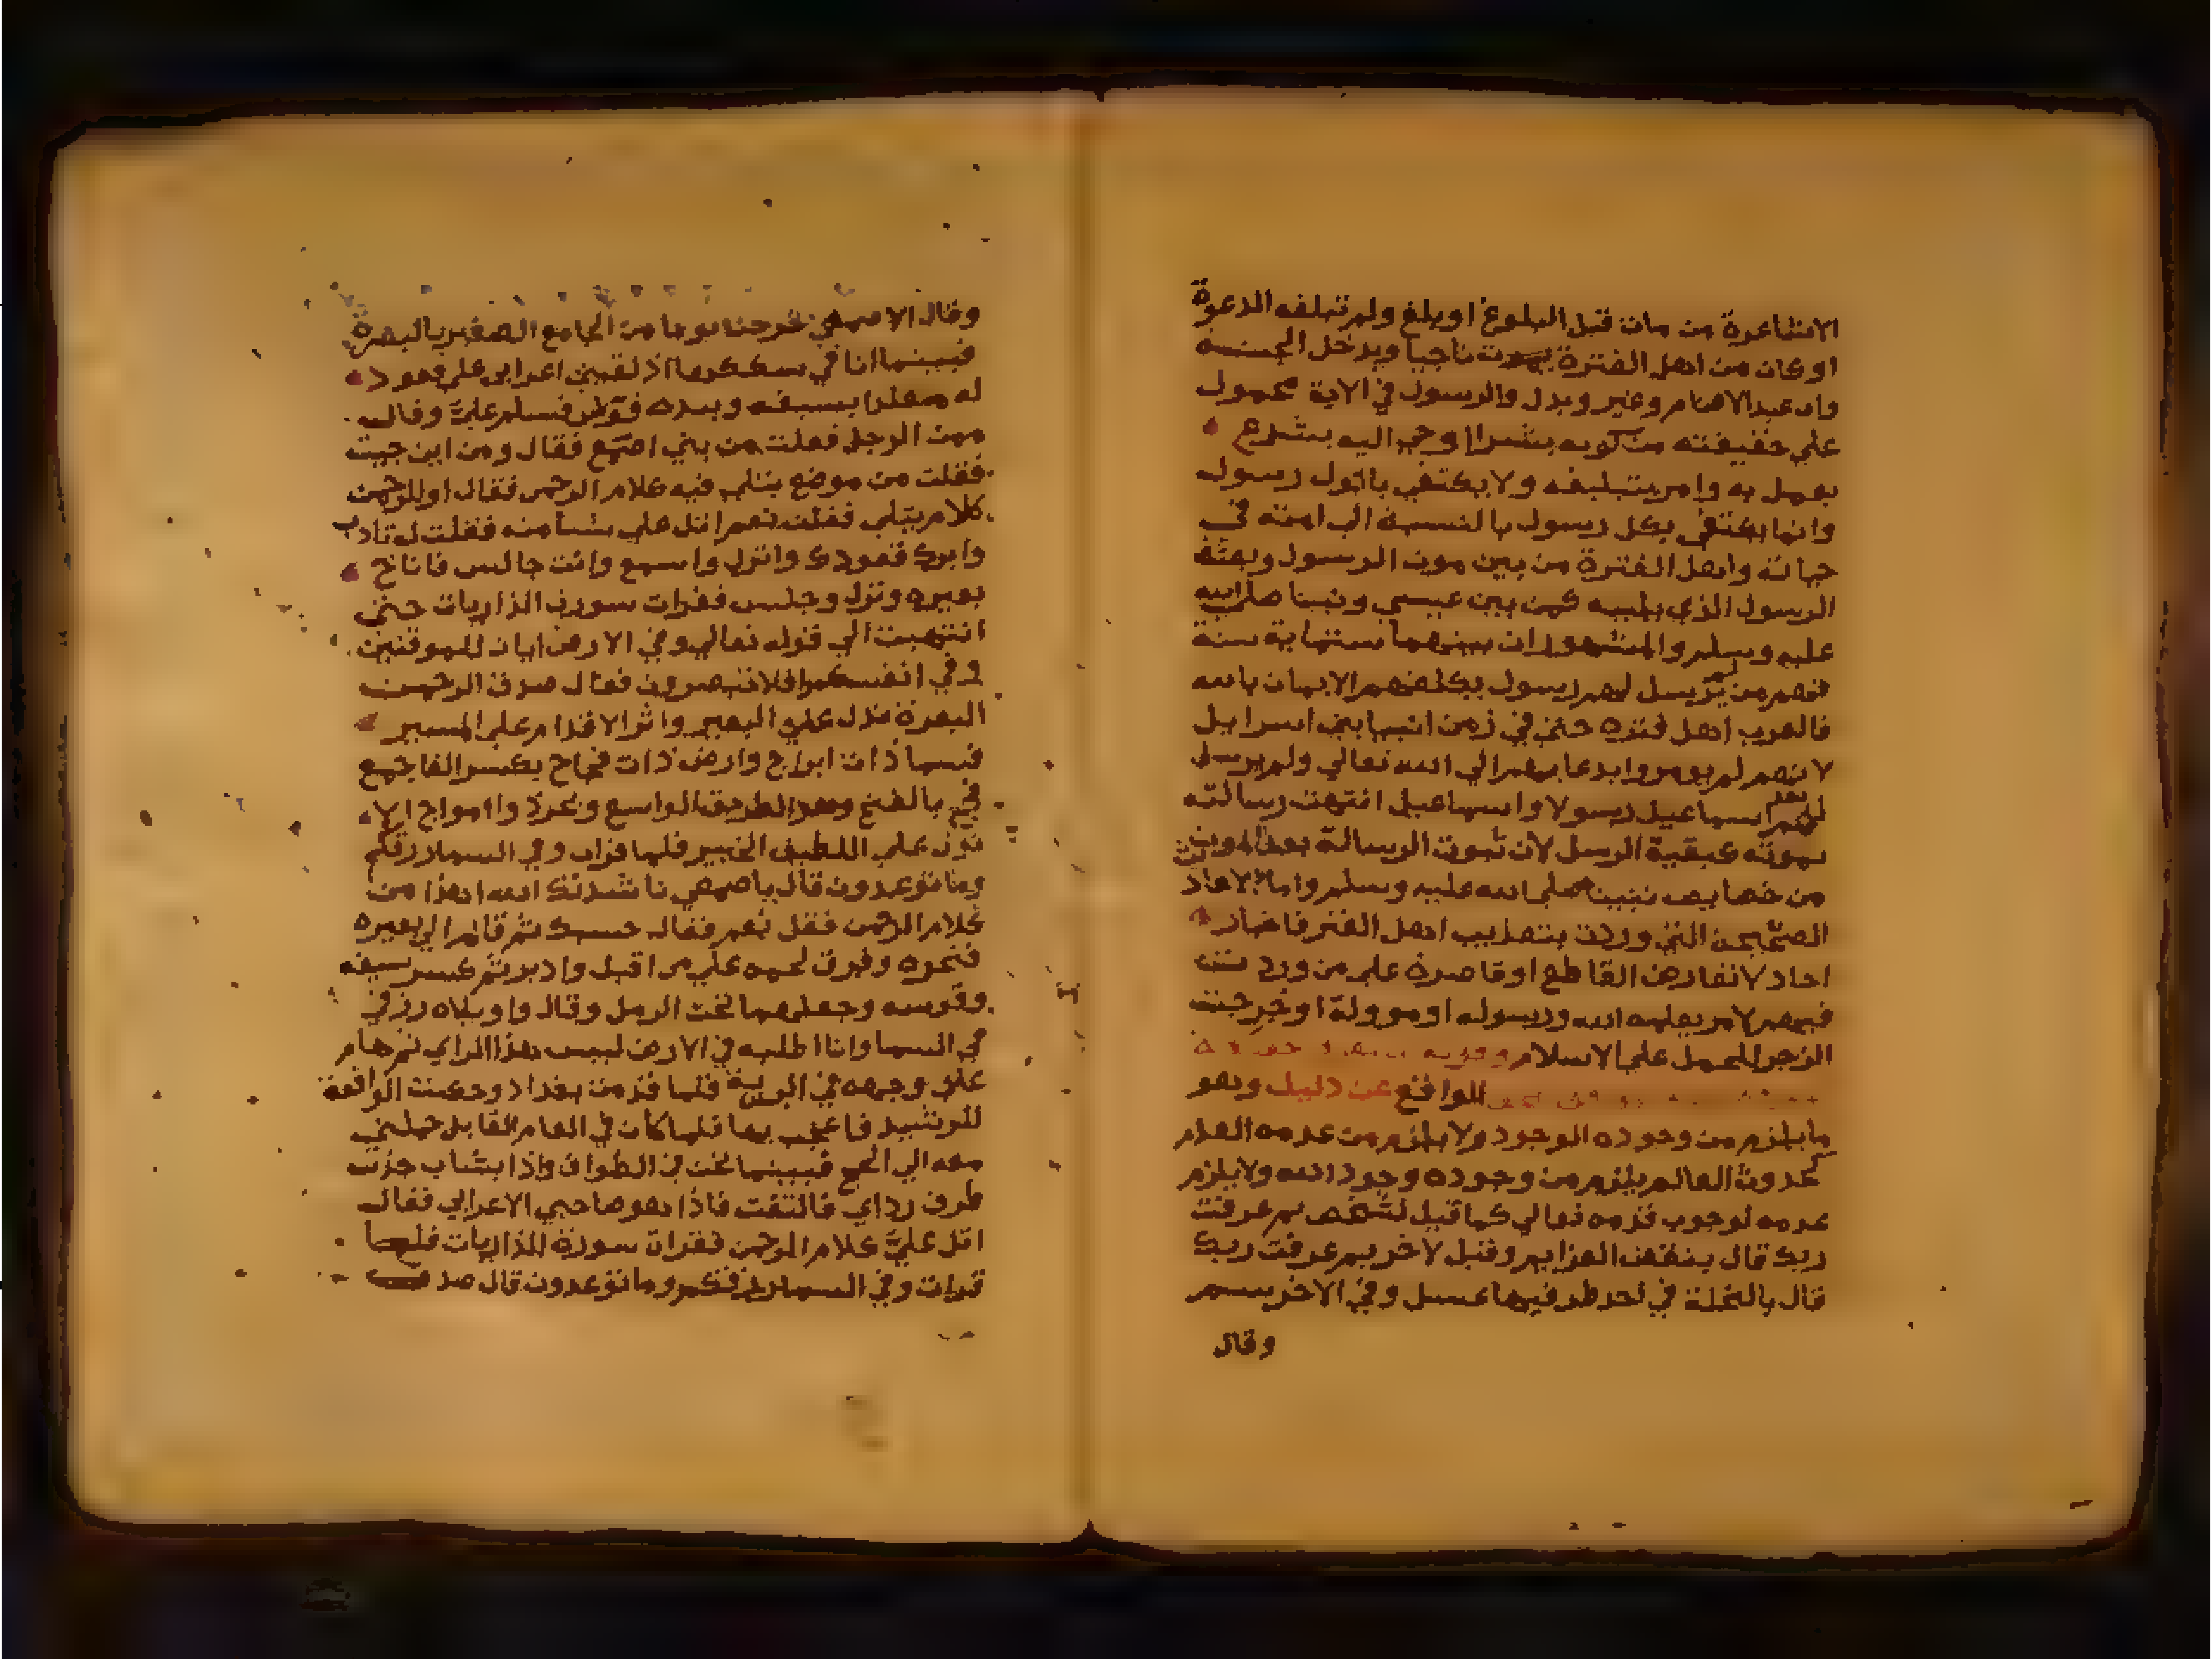 الاشاعرة من مات قبل البلوغ او بلغ ولم تبلغه الدعوة
او كان من اهل الفترة يموت ناجيا ويدخل الجنة
وان عبد الاصنام وغير وبدل والرسول في الاية محمول
علي حقيقته من كونه بشرا اوحي اليه بشرع
يعمل به وامر بتبليغه ولا يكتفي باول رسول
وانما يكتفي بكل رسول بالنسبة الى امته في
حياته واهل الفترة من بين موت الرسول وبعثة
الرسول الذي يليه كمن بين عيسي ونبينا صلى الله
عليه وسلم والمشهور ان بينهما ستماية سنة
فهم من لم يرسل لهم رسول يكلفهم الايمان بالله
فالعرب اهل فترة حتى في زمن انبيا بني اسرايل
لانهم لم يومروا بدعايهم الي الله تعالي ولم يرسل
لهم بعد اسماعيل رسولا واسماعيل انتهت رسالته
بموته كبقية الرسل لان ثبوت الرسالة بعد الموت
من خصايص نبينا صلى الله عليه وسلم واما الاحاد
الصحيحة التي وردت بتعذيب اهل الفترة فاخبار
احاد لا تعارض القاطع او قاصرة على من ورد
فيهم لامر يعلمه الله ورسوله او موولة او خرجت
الزجر للحمل علي الاسلام
الواقع عن دليل وهو
ما يلزم من وجوده الوجود ولا يلزم من عدمه العدم
كحدوث العالم يلزم من وجوده وجود الله ولا يلزم
عدمه لوجوب قدمه تعالي كما قيل لشخص بم عرفت
ربك قال بنقض العزايم وقيل لاخر بم عرفت ربك
قال بالنحلة في احد طرفيها عسل وفي الاخر سم
وقال
وقال الاصمعي خرجنا يوما من الجامع الصغير بالبصرة
فبينما انا في سككها اذ لقيني اعرابي على قعود
له مقلدا بسيفه وبيده قوس فسلم عليَّ وقال
ممن الرجل فقلت من بني اصمع فقال ومن اين جيت
فقلت من موضع يتلى فيه كلام الرحمن فقال اوللرحمن
كلام يتلى فقلت نعم اتل علي شيا منه فقلت له تادب
وابرك قعودك وانزل واسمع وانت جالس فاناخ
بعيره ونزل وجلس فقرات سورة الذاريات حتى
انتهيت الي قوله تعالي وفي الارض ايات للموقنين
وفي انفسكم افلا تبصرون فقال صدق الرحمن
البعرة تدل علي البعير واثر الاقدام على المسير
فسما ذات ابراج وارض ذات فجاج بكسر الفا جمع
فج بالفتح وهو الطريق الواسع وبحر ذو امواج الا
تدل على اللطيف الخبير فلما قرات وفي السما رزقكم
وما توعدون قال يا اصمعي ناشدتك الله اهذا من
كلام الرحمن فقل نعم فقال حسبك ثم قام الي بعيره
فنحره وفرق لحمه علي من اقبل وادبر ثم كسر سيفه
وقوسه وجعلهما تحت الرمل وقال واويلاه رزقي
في السما وانا اطلبه في الارض ليس هذا الراي ثم هام
على وجهه في البرية فلما قدمت بغداد وحكيت الواقعة
للرشيد فاعجب بها فلما كان في العام القابل حملني
معه الي الحج فبينما نحن في الطواف واذا بشاب جذب
طرف رداي فالتفت فاذا هو صاحبي الاعرابي فقال
اتل عليَّ كلام الرحمن فقرات سورة الذاريات فلما
قرات وفي السما رزقكم وما توعدون قال صدق